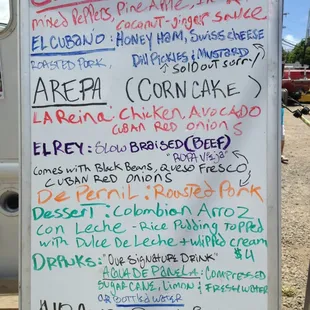 mixed Peppers, Pine Apple, in
Coconut-ginger sauce
EL CUBANO: HONEY HAM, SWISS CHEESE
ROASTED PORK, Dill PICKLES & MUSTARD
Sold out sorry
AREPA (CORN CAKE)
LA Reina: Chicken, Avocado
CUBAN RED ONIONS
EL REY: SLOW BRAISED (BEEF)
"ROPA VIEJA"
COMES WITH BLACK BEANS, QUESO FRESCO,
CUBAN RED ONIONS
De Pernil: Roasted Pork
Dessert: Colombian Arroz
con Leche - Rice Pudding topped
with Dulce De Leche + whipped cream
$4
DRINKS: "OUR SIGNATURE DRINK"
AGUA DE PANELA: COMPRESSED
SUGAR CANE, LIMON & FRESH WATER
OR BOTTLED WATER